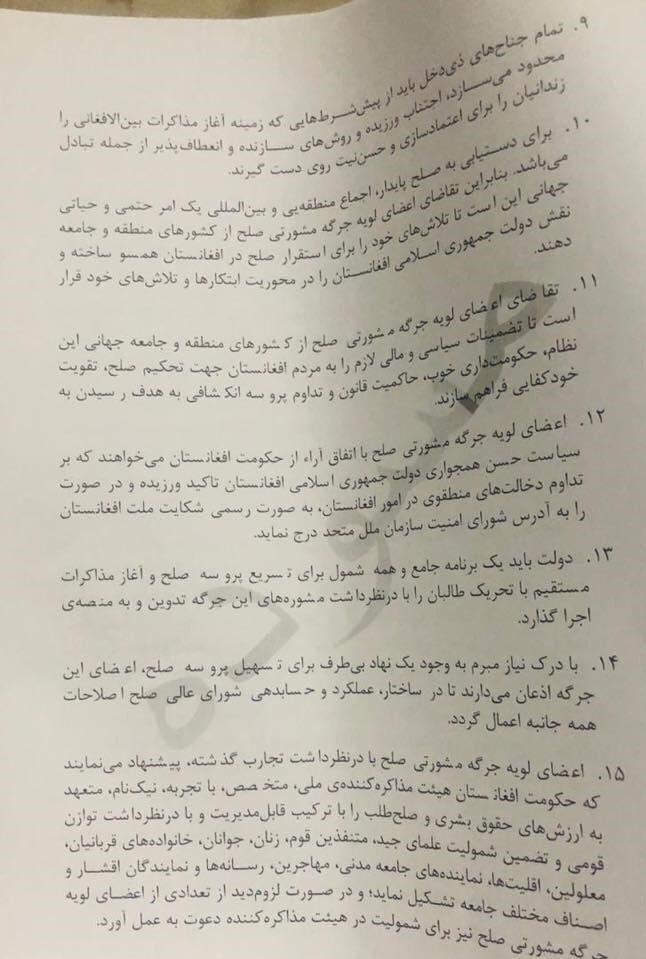 ۹. تمام جناح‌های ذی‌دخل باید از پیش‌شرط‌هایی که زمینه آغاز مذاکرات بین‌الافغانی را
محدود می‌سازد، اجتناب ورزیده و روش‌های سازنده و انعطاف‌پذیر از جمله تبادل
زندانیان را برای اعتمادسازی و حسن‌نیت روی دست گیرند.
۱۰. برای دستیابی به صلح پایدار، اجماع منطقه‌یی و بین‌المللی یک امر حتمی و حیاتی
می‌باشد. بنابراین تقاضای اعضای لویه جرگه مشورتی صلح از کشورهای منطقه و جامعه
جهانی این است تا تلاش‌های خود را برای استقرار صلح در افغانستان همسو ساخته و
نقش دولت جمهوری اسلامی افغانستان را در محوریت ابتکارها و تلاش‌های خود قرار
دهند.
۱۱. تقاضای اعضای لویه جرگه مشورتی صلح از کشورهای منطقه و جامعه جهانی این
است تا تضمینات سیاسی و مالی لازم را به مردم افغانستان جهت تحکیم صلح، تقویت
نظام، حکومت‌داری خوب، حاکمیت قانون و تداوم پروسه انکشافی به هدف رسیدن به
خودکفایی فراهم سازند.
۱۲. اعضای لویه جرگه مشورتی صلح با اتفاق آراء از حکومت افغانستان می‌خواهند که بر
سیاست حسن همجواری دولت جمهوری اسلامی افغانستان تاکید ورزیده و در صورت
تداوم دخالت‌های منطقوی در امور افغانستان، به صورت رسمی شکایت ملت افغانستان
را به آدرس شورای امنیت سازمان ملل متحد درج نماید.
۱۳. دولت باید یک برنامه جامع و همه شمول برای تسریع پروسه صلح و آغاز مذاکرات
مستقیم با تحریک طالبان را با درنظرداشت مشوره‌های این جرگه تدوین و به منصه‌ی
اجرا گذارد.
۱۴. با درک نیاز مبرم به وجود یک نهاد بی‌طرف برای تسهیل پروسه صلح، اعضای این
جرگه اذعان می‌دارند تا در ساختار، عملکرد و حسابدهی شورای عالی صلح اصلاحات
همه جانبه اعمال گردد.
۱۵. اعضای لویه جرگه مشورتی صلح با درنظرداشت تجارب گذشته، پیشنهاد می‌نمایند
که حکومت افغانستان هیئت مذاکره‌کننده‌ی ملی، متخصص، با تجربه، نیک‌نام، متعهد
به ارزش‌های حقوق بشری و صلح‌طلب را با ترکیب قابل‌مدیریت و با درنظرداشت توازن
قومی و تضمین شمولیت علمای جید، متنفذین قوم، زنان، جوانان، خانواده‌های قربانیان،
معلولین، اقلیت‌ها، نماینده‌های جامعه مدنی، مهاجرین، رسانه‌ها و نمایندگان اقشار و
اصناف مختلف جامعه تشکیل نماید؛ و در صورت لزوم‌دید از تعدادی از اعضای لویه
جرگه مشورتی صلح نیز برای شمولیت در هیئت مذاکره‌کننده دعوت به عمل آورد.
مسوده